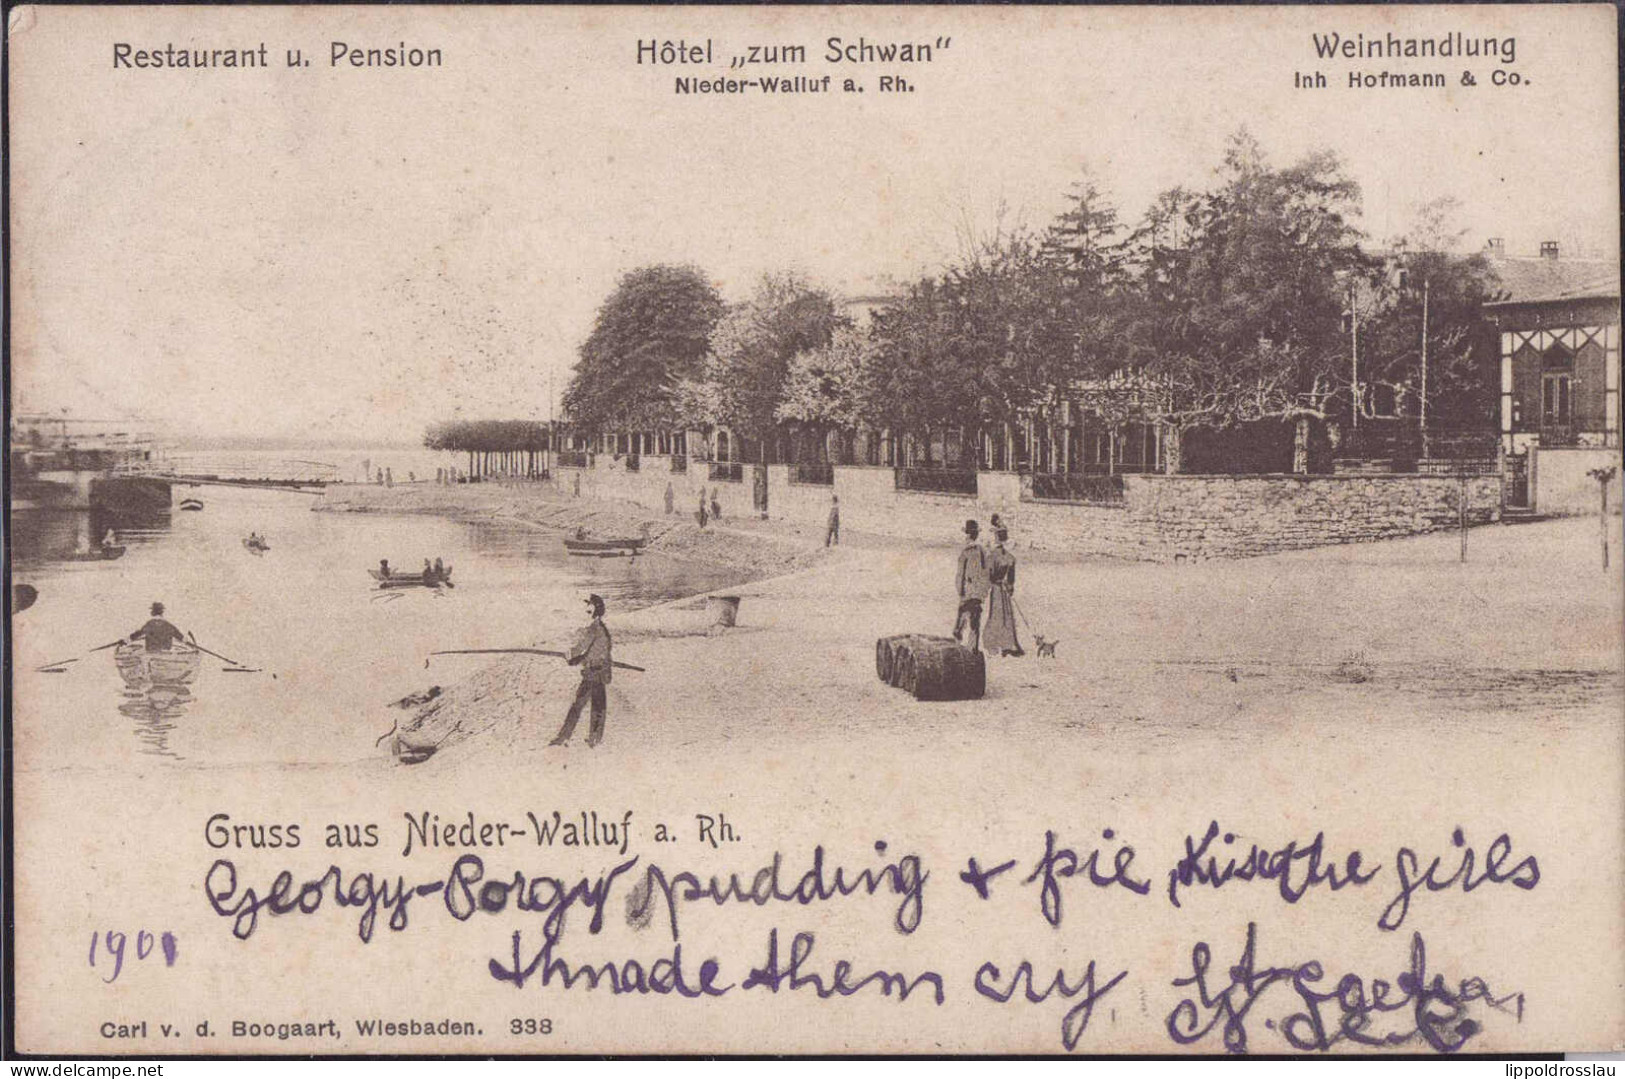 Restaurant u. Pension
Hôtel „zum Schwan“
Nieder-Walluf a. Rh.
Weinhandlung
Inh Hofmann & Co.
Gruss aus Nieder-Walluf a. Rh.
Georgy-Porgy pudding + pie, Kissed the girls
1901
& made them cry,
Carl v. d. Boogaart, Wiesbaden. 338
www.delcampe.net
lippoldrosslau